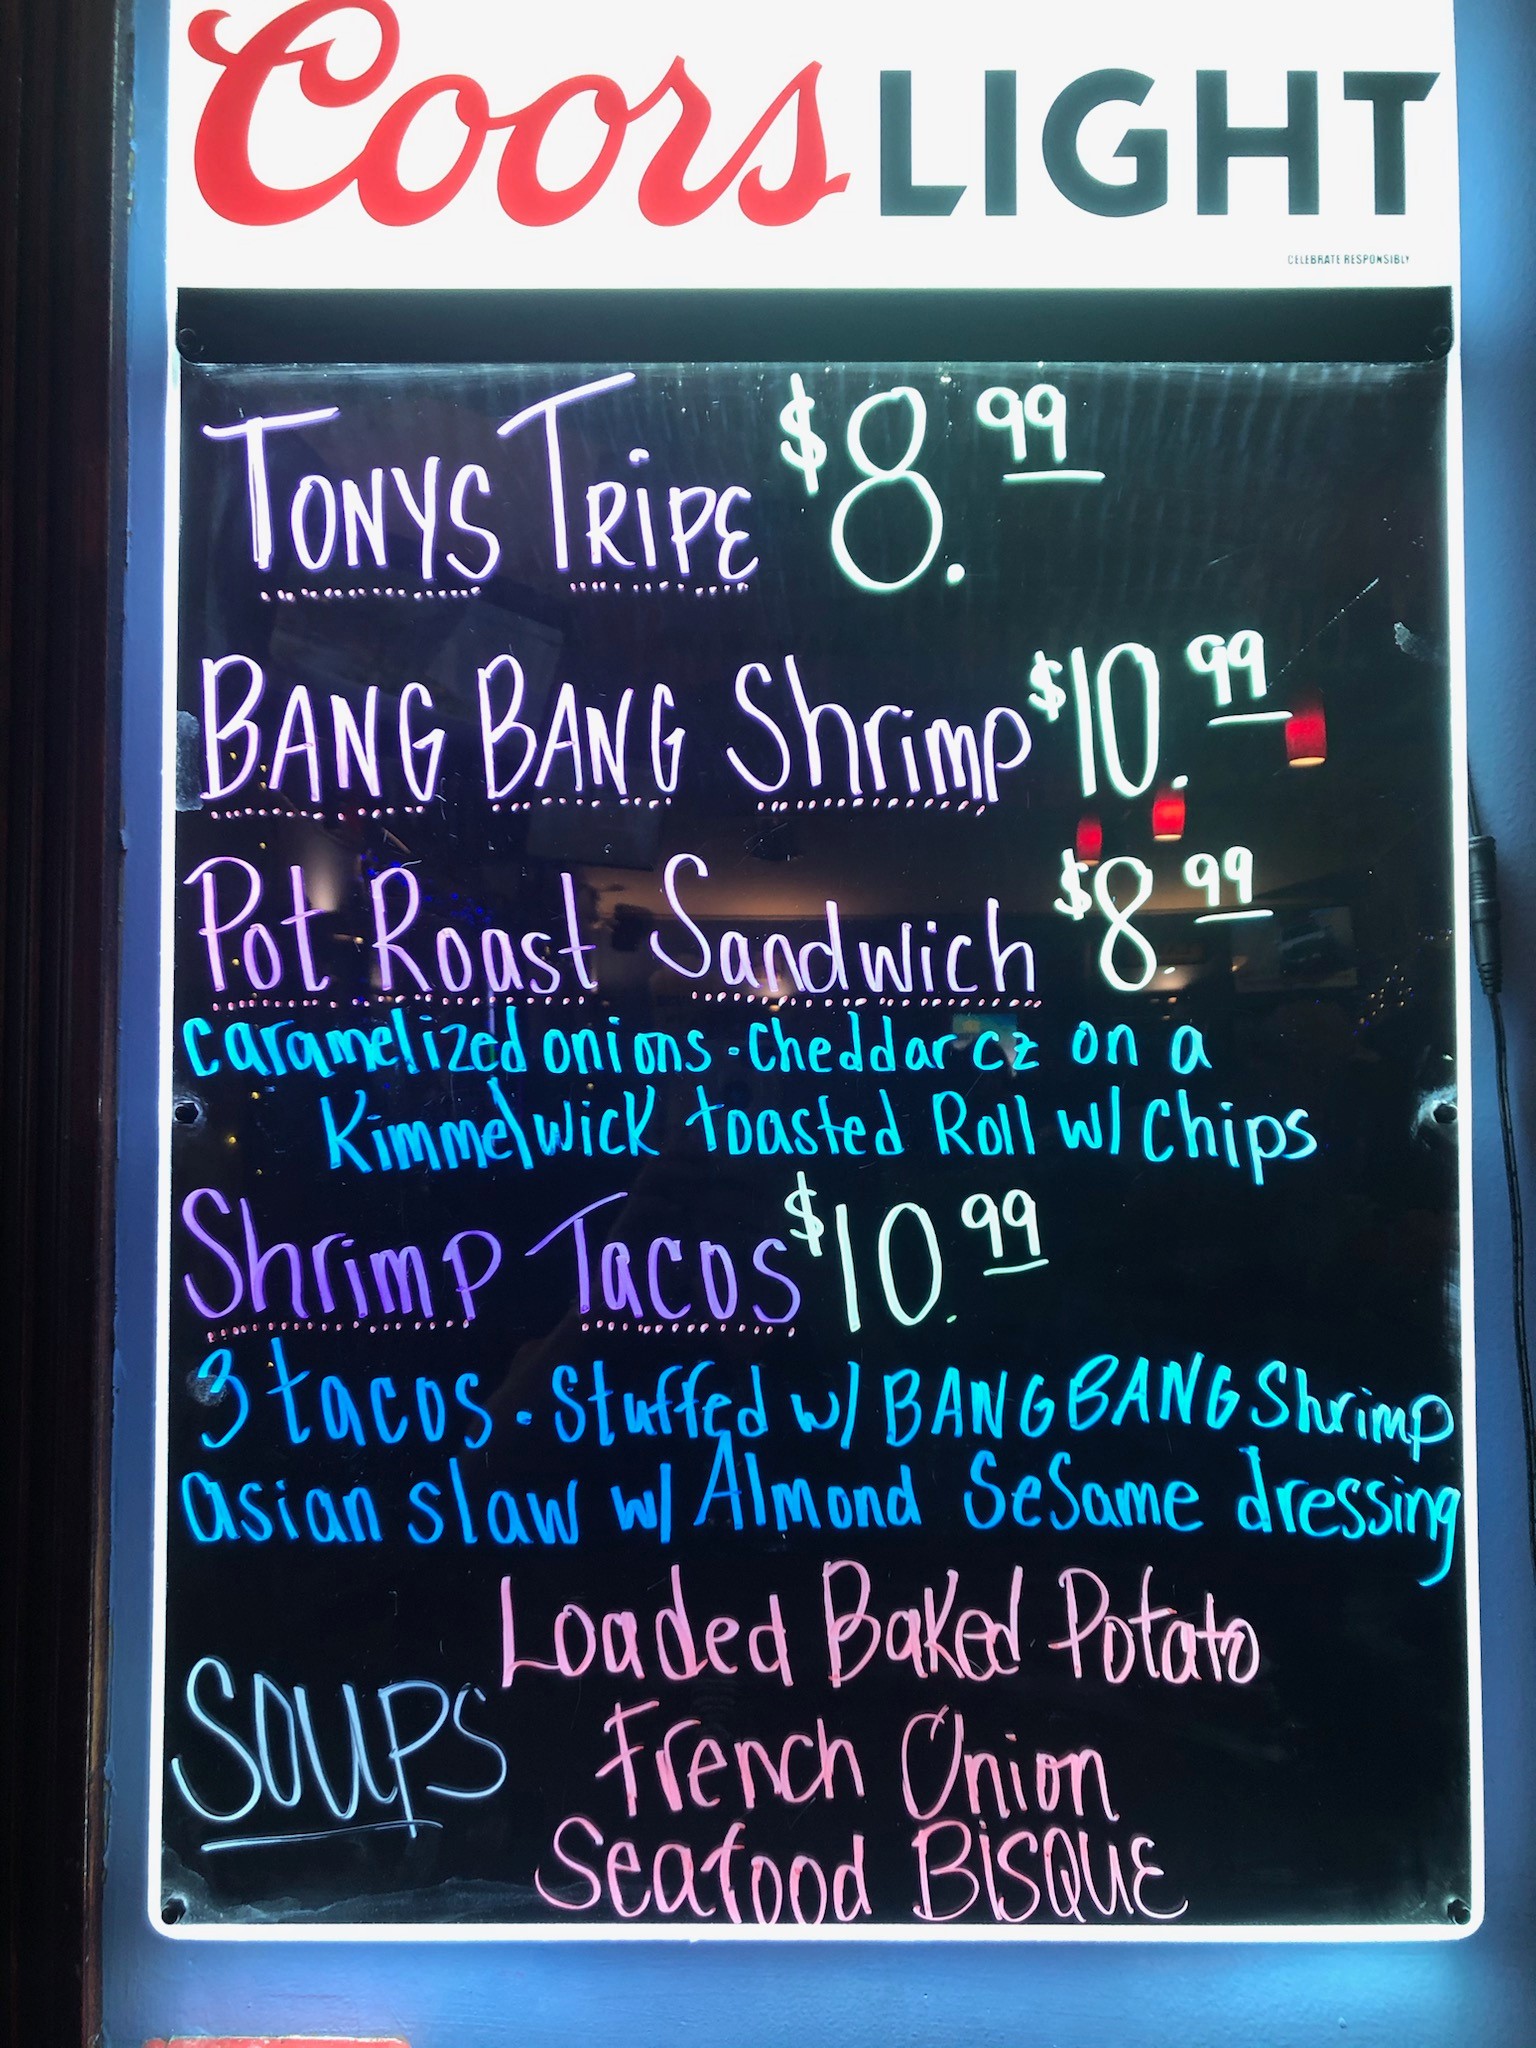 Coors LIGHT
CELEBRATE RESPONSIBLY
TONYS TRiPE $8.99
BANG BANG Shrimp $10.99
Pot Roast Sandwich $8 99
caramelized onions · cheddar cz on a
Kimmelwick toasted Roll w/ chips
Shrimp Tacos $10.99
3 tacos · Stuffed w/ BANG BANG Shrimp
asian slaw w/ Almond SeSame dressing
SOUPS
Loaded Baked Potato
French Onion
Seafood BiSQUE